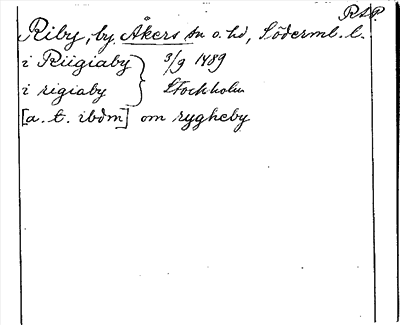 RAP
Riby, by, Åkers sn o. hd, Söderml. l.
i Riigiaby } 3/9 1489
i rigiaby } Stockholm
[a. t. ibdm] om rygheby